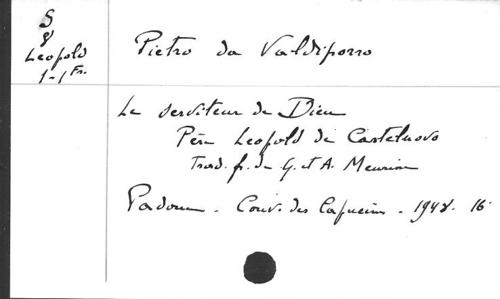 S
8
Leopold
1-1 Fr.
Pietro da Valdiporro
Le serviteur de Dieu
Père Leopold de Castelnovo
Trad. fr. de G. et A. Meunier
Padoue. Couv. des Capucins. 1948. 16